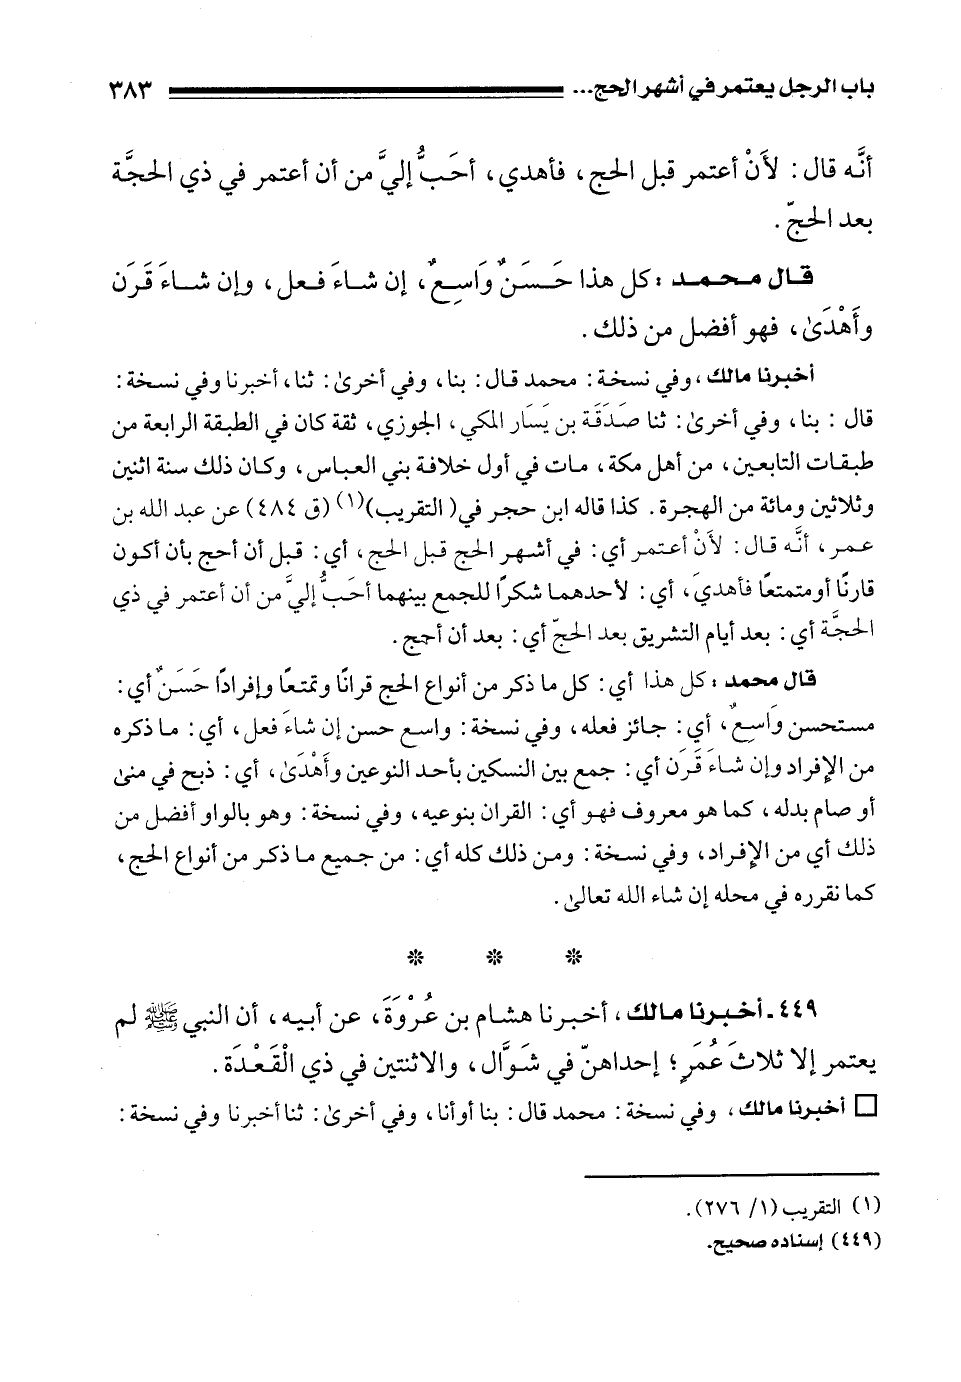 باب الرجل يعتمر في أشهر الحج... ٣٨٣
أنَّه قال: لأَنْ أعتمر قبل الحج، فأهدي، أحَبُّ إليَّ من أن أعتمر في ذي الحجَّة
بعد الحجّ.
قال محمد: كل هذا حَسَنٌ وَاسِعٌ، إن شاءَ فعل، وإن شاءَ قَرَن
وأَهْدَىٰ، فهو أفضل من ذلك.
أخبرنا مالك، وفي نسخة: محمد قال: بنا، وفي أخرىٰ: ثنا، أخبرنا وفي نسخة:
قال: بنا، وفي أخرىٰ: ثنا صَدَقَة بن يَسَار المكي، الجوزي، ثقة كان في الطبقة الرابعة من
طبقات التابعين، من أهل مكة، مات في أول خلافة بني العباس، وكان ذلك سنة اثنين
وثلاثين ومائة من الهجرة. كذا قاله ابن حجر في (التقريب)(١) (ق ٤٨٤) عن عبد الله بن
عمر، أنَّه قال: لأَنْ أعتمر أي: في أشهر الحج قبل الحج، أي: قبل أن أحج بأن أكون
قارنًا أو متمتعًا فأهديَ، أي: لأحدهما شكرًا للجمع بينهما أحَبُّ إليَّ من أن أعتمر في ذي
الحجَّة أي: بعد أيام التشريق بعد الحجّ أي: بعد أن أحج.
قال محمد: كل هذا أي: كل ما ذكر من أنواع الحج قرانًا وتمتعًا وإفرادًا حَسَنٌ أي:
مستحسن وَاسِعٌ، أي: جائز فعله، وفي نسخة: واسع حسن إن شاءَ فعل، أي: ما ذكره
من الإفراد وإن شاءَ قَرَن أي: جمع بين النسكين بأحد النوعين وأَهْدَىٰ، أي: ذبح في منىٰ
أو صام بدله، كما هو معروف فهو أي: القران بنوعيه، وفي نسخة: وهو بالواو أفضل من
ذلك أي من الإفراد، وفي نسخة: ومن ذلك كله أي: من جميع ما ذكر من أنواع الحج،
كما نقرره في محله إن شاء الله تعالىٰ.
* * *
٤٤٩ـ أخبرنا مالك، أخبرنا هشام بن عُرْوَةَ، عن أبيه، أن النبي ﷺ لم
يعتمر إلا ثلاثَ عُمَرٍ؛ إحداهنّ في شَوَّال، والاثنتين في ذي الْقَعْدَة.
□ أخبرنا مالك، وفي نسخة: محمد قال: بنا أو أنا، وفي أخرىٰ: ثنا أخبرنا وفي نسخة:
(١) التقريب (١/ ٢٧٦).
(٤٤٩) إسناده صحيح.